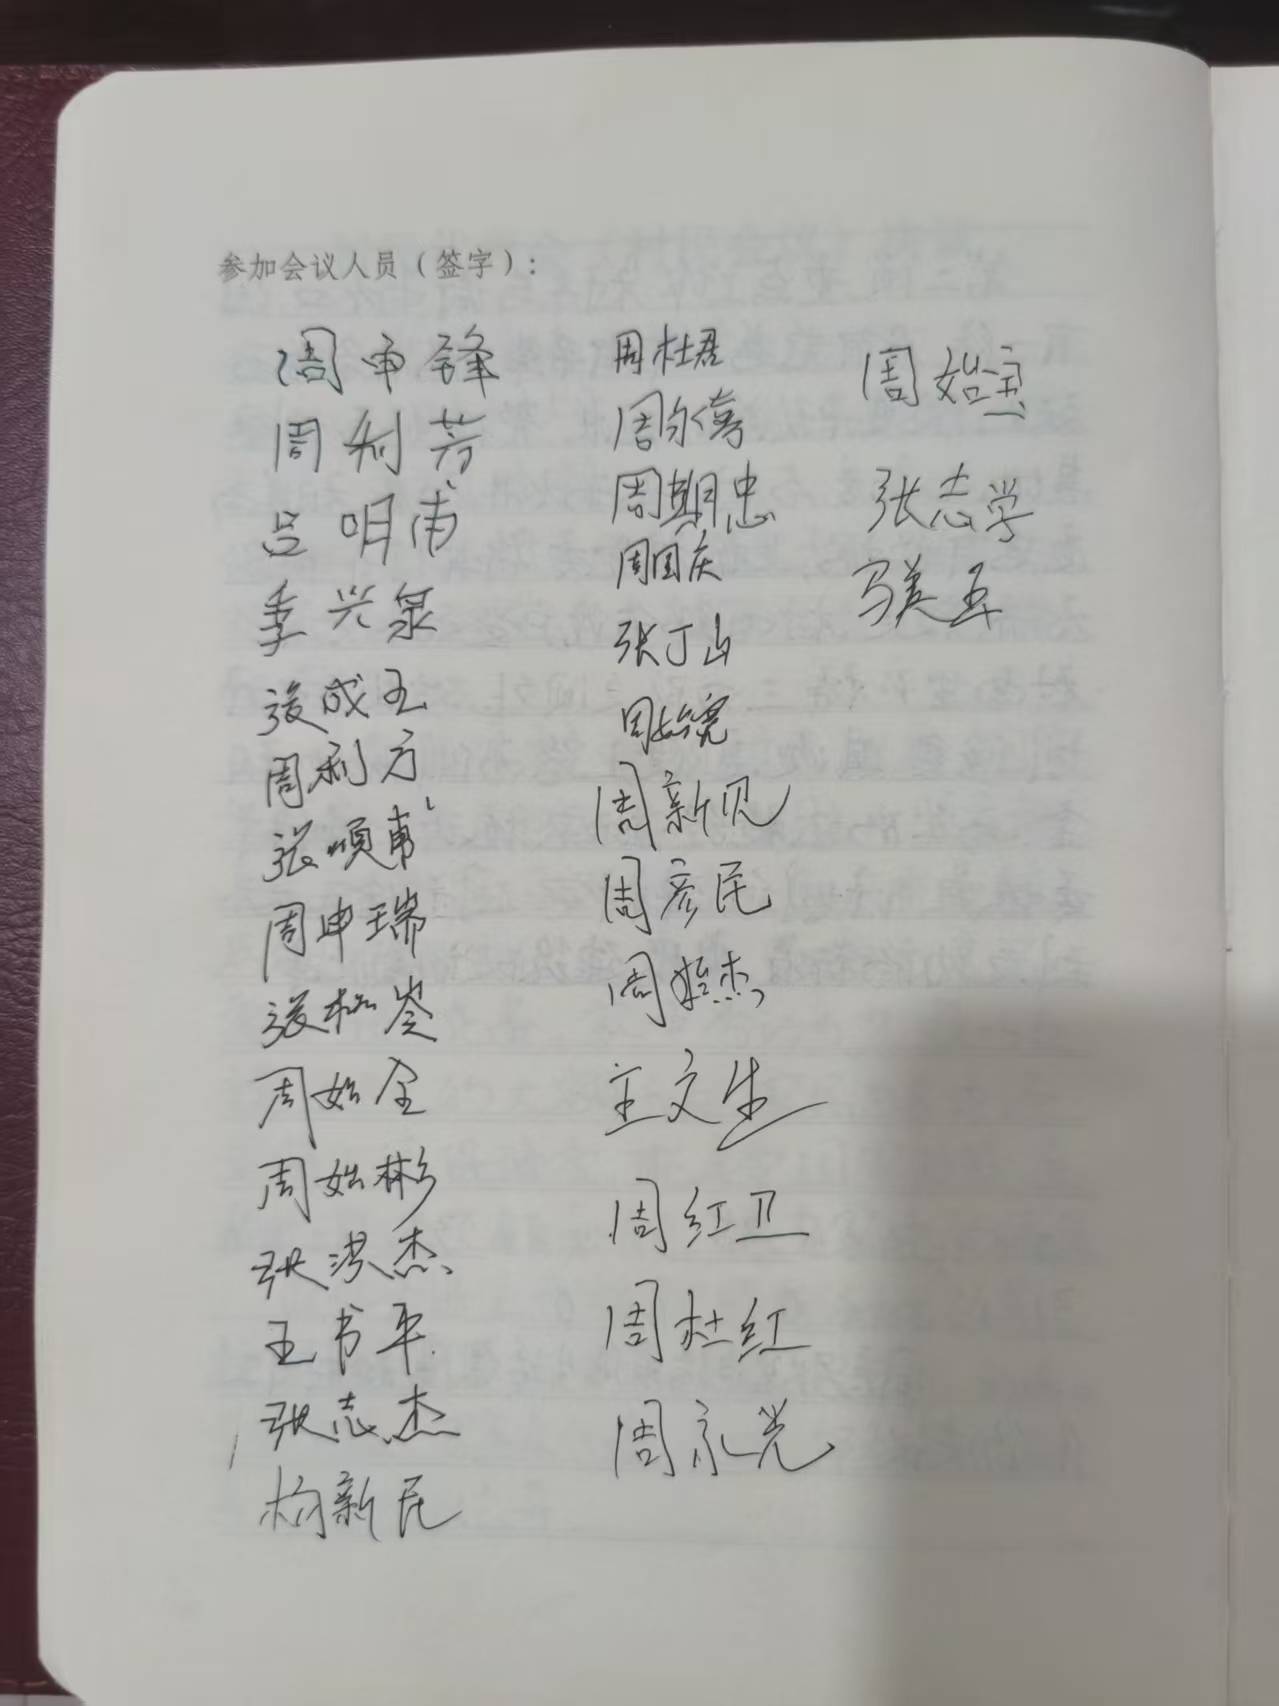 参加会议人员（签字）：
周申锋
周利芳
吕明甫
季兴泉
张成王
周利方
张顺甫
周申瑞
张松岑
周始全
周始彬
张洪杰
王书平
张志杰
杨新民
周杜君
周永倚
周期忠
周国庆
张丁山
周始亮
周新见
周彦民
周始杰
王文生
周红卫
周杜红
周永光
周始寅
张志学